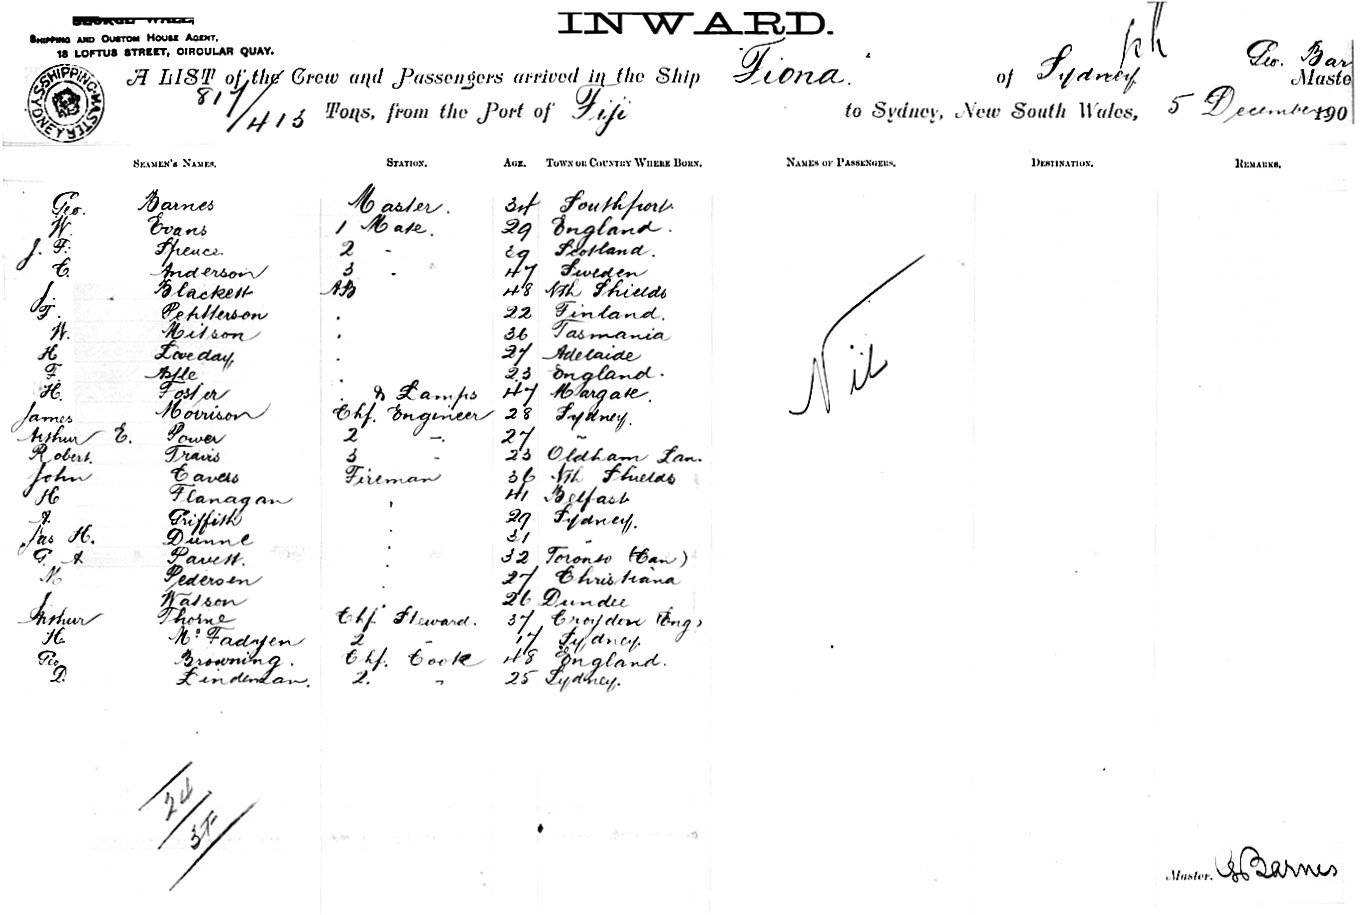 GEORGE WALL,
SHIPPING AND CUSTOM HOUSE AGENT,
18 LOFTUS STREET, CIRCULAR QUAY.
INWARD.
SHIPPING MASTER SYDNEY
A LIST of the Crew and Passengers arrived in the Ship "Fiona" of Sydney Geo. Bar Maste
817/413 Tons, from the Port of Fiji to Sydney, New South Wales, 5 December 190
SEAMEN'S NAMES. STATION. AGE. TOWN OR COUNTRY WHERE BORN. NAMES OF PASSENGERS. DESTINATION. REMARKS.
Geo. Barnes Master. 34 Southport
W. Evans 1 Mate. 29 England.
J. F. Spence 2 " 39 Scotland.
C. Anderson 3 " 47 Sweden
J. Blackett AB 48 Nth Shields
F. Pehtterson " 22 Finland.
W. Mitson " 36 Tasmania
H Loveday " 27 Adelaide
F. " 23 England.
H. Foster " & Lamps 47 Margate.
James Morrison Chf. Engineer 28 Sydney.
Arthur E. Power 2 " 27 "
Robert. Travis 3 " 23 Oldham Lan.
John Cavers Fireman 36 Nth Shields
H Flanagan " 41 Belfast
A. Griffith " 29 Sydney.
Jas H. Dunne " 31 "
G. A Pavett. " 32 Toronto (Can)
N Pedersen " 27 Christiana
J Watson " 26 Dundee
Arthur Thorne Chf. Steward. 37 Croydon (Eng)
H. McFadyen 2 " 17 Sydney.
Geo Browning. Chf. Cook 48 England.
D. Lindeman. 2. " 25 Sydney.
Nil
24
Master. G Barnes